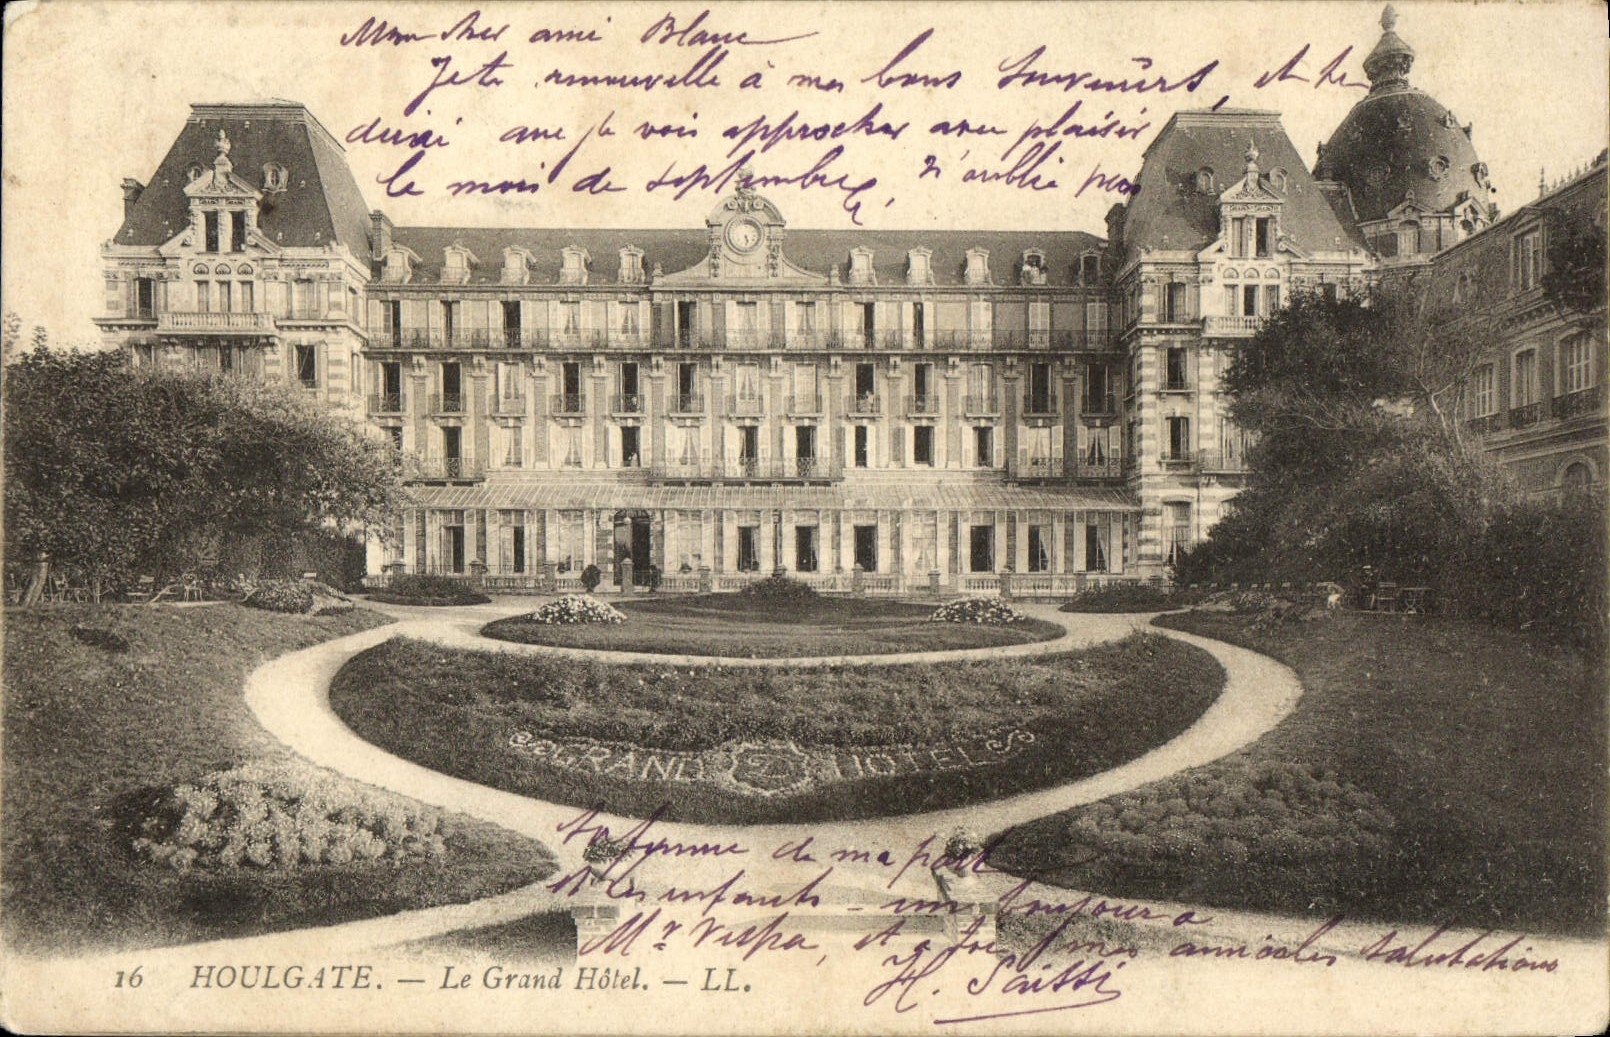 Mon cher ami Blanc
Je te renouvelle à mes bons souvenirs, et te
dirai que je vois approcher avec plaisir
le mois de septembre, n'oublie pas
GRAND HOTEL
ta femme de ma part
et les enfants - un bonjour à
Mr Vespa, et à toi mes amicales salutations
H. Saissi
16 HOULGATE. — Le Grand Hôtel. — LL.